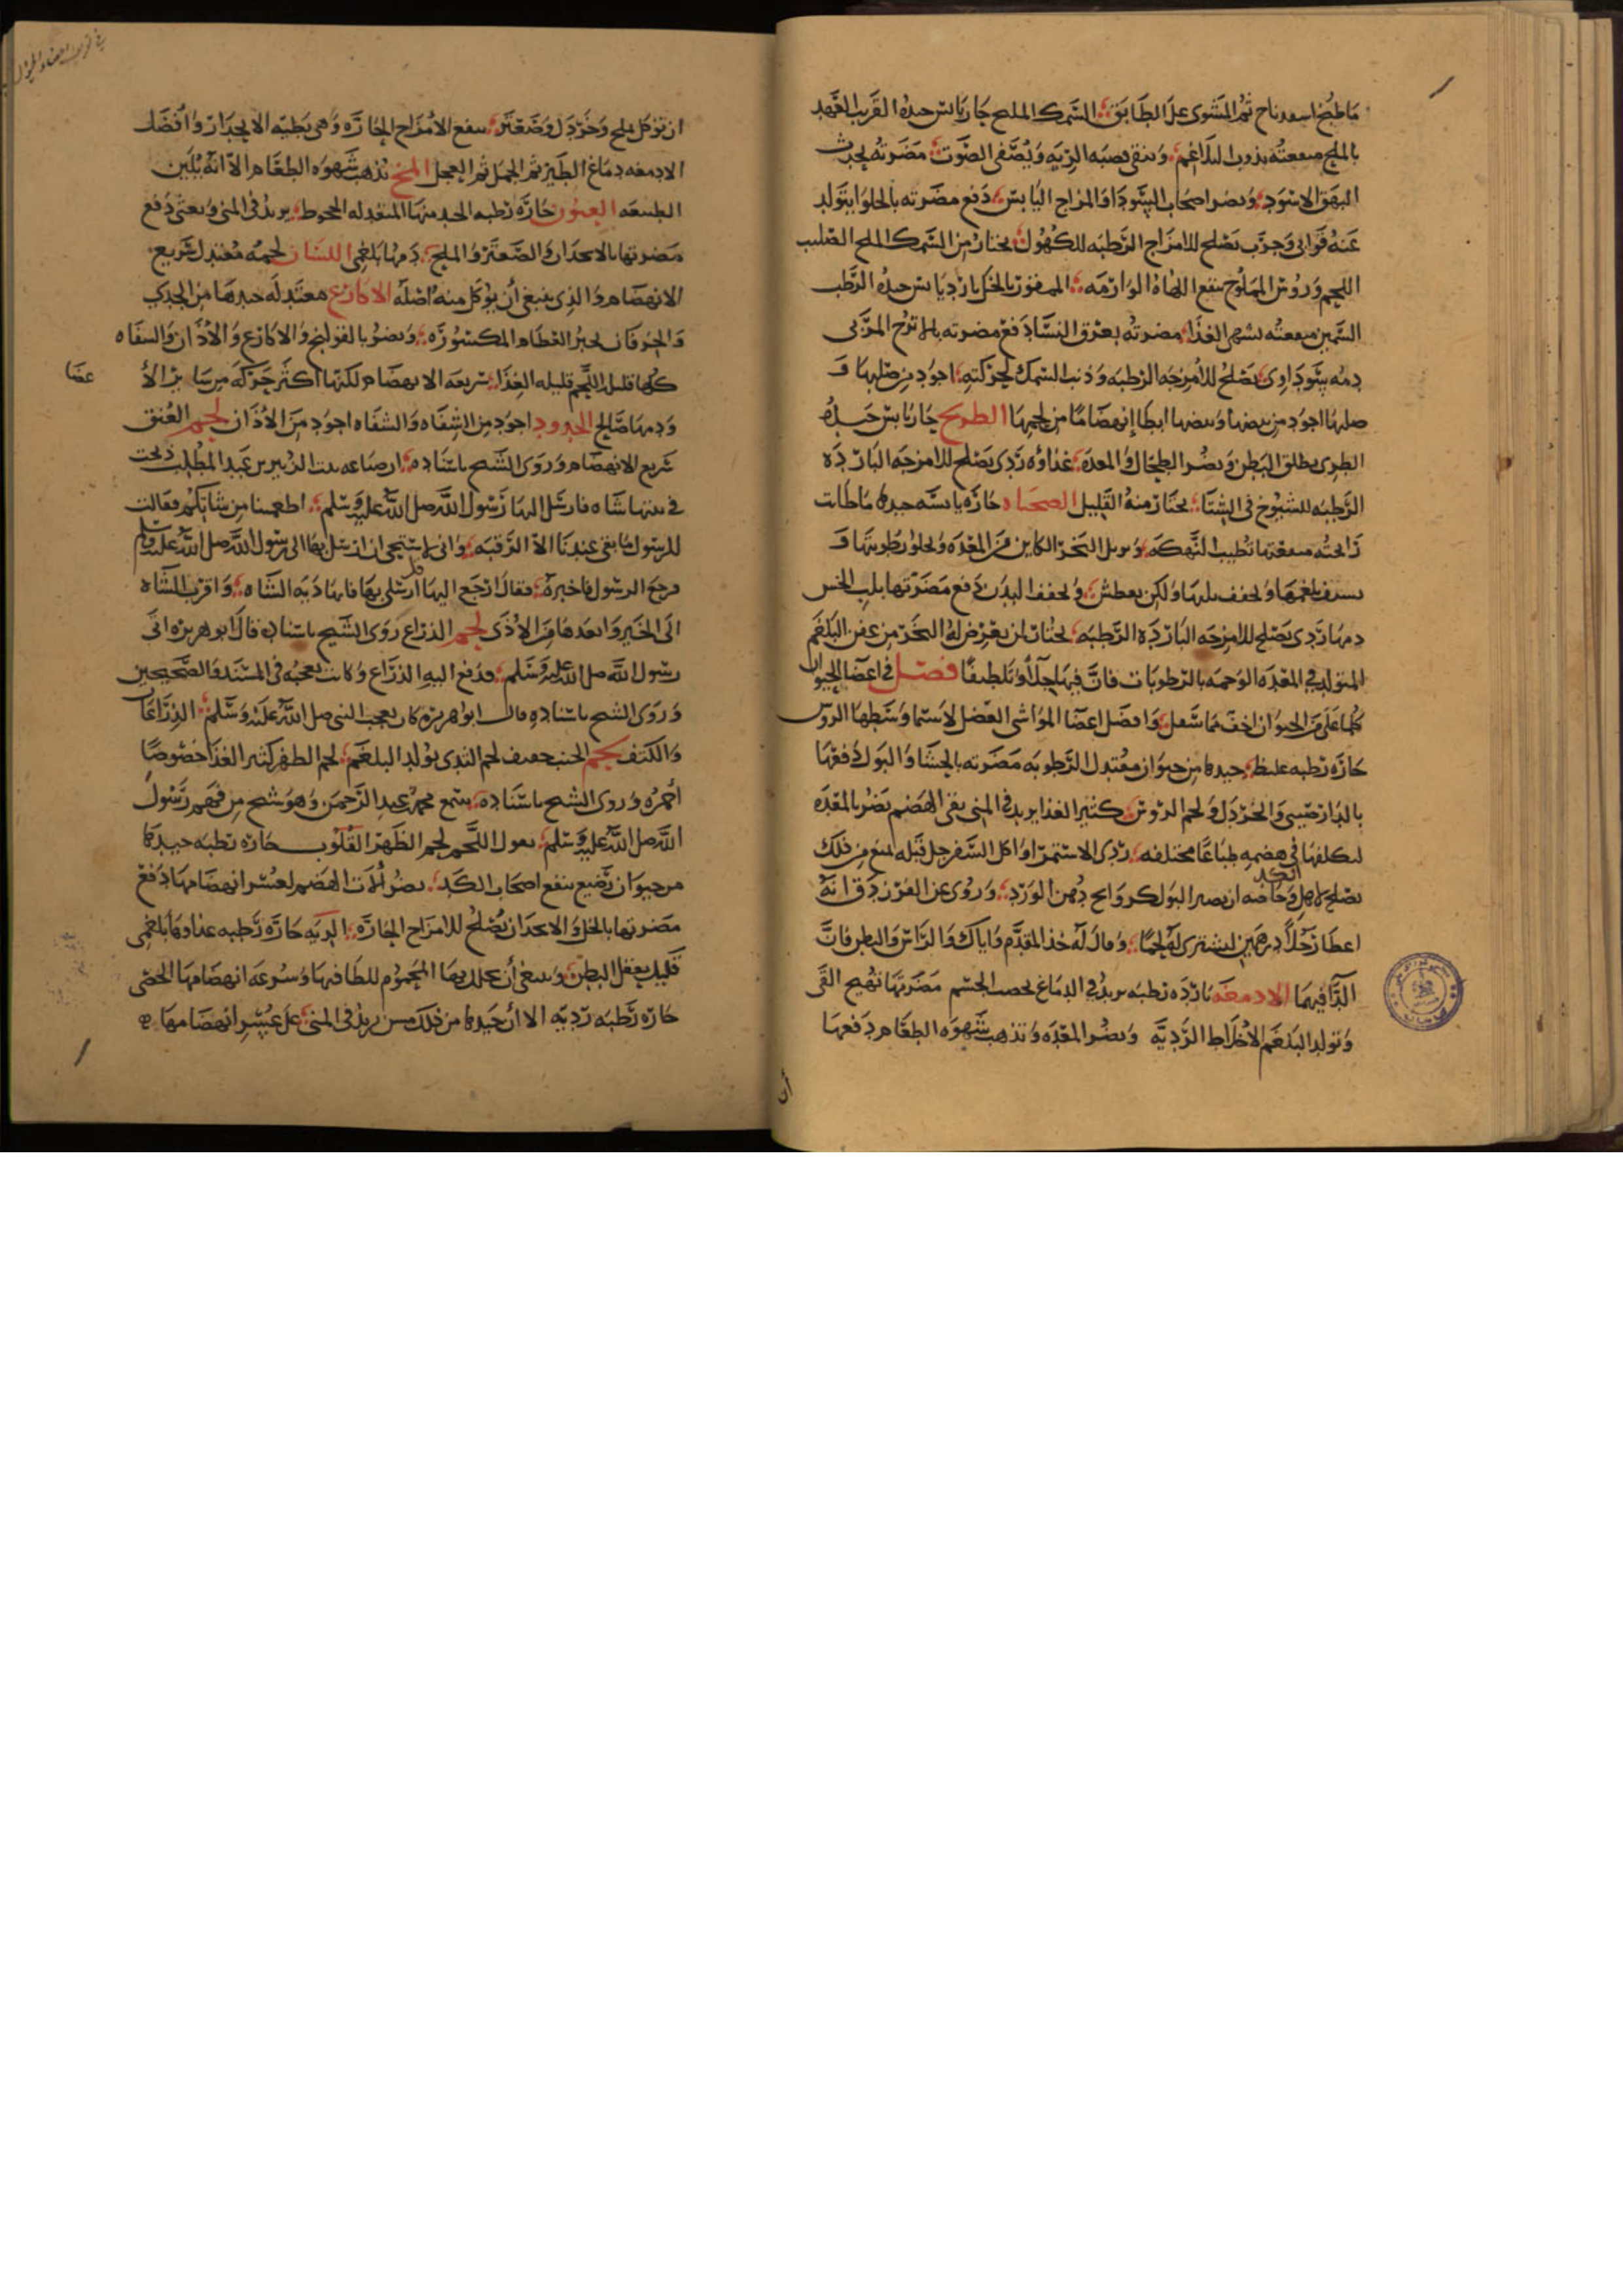 ما طبخ اسفيدباح ثم المشوى على الطابق السمك الملح حار يابس جيده القريب العهد
بالملح منفعته يذوب البلاغم وينقى قصبه الريه ويصفى الصوت مضرته يحدث
البهق الاسود ويضر اصحاب السودا والمزاج اليابس دفع مضرته بالحلوا يتولد
عنه قوابى وجرب يصلح للامزاج الرطبه للكهول يختار من السمك الملح الصليب
اللحم وروس المملوح ينفع اللهاه الوارمه الممقور بالخل بارد يابس جيده الرطب
السمين منفعته يشهى الغذا مضرته بعرق النسا دفع مضرته بالاترج المربى
دمه سوداوى يصلح للامزجه الرطبه وذنب السمك لحركته اجود من صلبها و
صلبها اجود من بيضها وبيضها ابطا انهضاما من لحمها الطريح حار يابس جيده
الطرى يطلق البطن ويضر الطحال والمعده غذاوه ردى يصلح للامزجه البارده
الرطبه للشيوخ فى الشتا يختار منه القليل الصحناه حاره يابسه جيدها ما طابت
رايحته منفعتها تطيب النهكه ويزيل البخر الكاين من المعده ويجلو رطوبتها و
ينشف بلغمها ويجفف بللها ولكن يعطش ويجفف البدن دفع مضرتها بلب الخس
دمها ردى يصلح للامزجه البارده الرطبه يختار لمن يعرض له البخر من عفن البلغم
المتولد فى المعده الوخمه بالرطوبات فان فيها جلاً وتلطيفا فصل فى اعضا الحيوان
كلما على من الحيوان اخف مما سفل وافضل اعضا المواشى الفضل لا سيما وسطها الروس
حاره رطبه غليظ جيدها من حيوان معتدل الرطوبه مضرته بالجشا والبول دفعها
بالدارصينى والخردل ولحم الروس كثير الغذا يزيد فى المنى بقى الهضم يضر بالمعده
لتكلفها فى هضمه طباعا مختلفه ردى الاستمرا واكل السفرجل قبله لمنع من ذلك
يصلح وخاصه ان يصير البول كروايح دهن الورد وروى عن الفرزدق انه
اعطا رجلاً درهمين ليشترى له لحما وقال له خذ المقدم واياك والراس والبطن فان
الدا فيهما الادمغه بارده رطبه يزيد فى الدماغ يخصب الجسم مضرتها تهيج القى
وتولد البلغم الاخلاط الرديه ويضر المعده وتذهب شهوه الطعام دفعها
ان
ان توكل بملح وخردل وصعتر ينفع الامزاج الحاره وهى بطيه الانحدار وافضل
الادمغه دماغ الطير ثم الجمل ثم العجل المخ تذهب شهوه الطعام الا انه يلين
الطبيعه العيون حاره رطبه الجيد منها المعتدله الجحوظ يزيد فى المنى ويغثى دفع
مضرتها بالانجدان والصعتر والملح دمها بلغمى اللسان لحمه معتدل سريع
الانهضام والذى ينبغى ان يوكل منه اصله الاكارع معتدله جيدها من الجدى
والخرفان لجبر العظام المكسوره ويضر بالقولنج والاكارع والاذان والشفاه
كلها قليل اللحم قليله الغذا سريعه الانهضام لكنها اكثر حركه من سائر الا
عضا
ودمها صالح الخدود اجود من الشفاه والشفاه اجود من الاذان لحم العنق
سريع الانهضام وروى الشيخ باسناده ان ضباعه بنت الزبير بن عبد المطلب ذبحت
فى بيتها شاه فارسل اليها رسول الله صلى الله عليه وسلم اطعمينا من شاتكم فقالت
للرسول ما بقى عندنا الا الرقبه وانى لاستحى ان ارسل بها الى رسول الله صلى الله عليه وسلم
فرجع الرسول فاخبره فقال ارجع اليها ارسلى بها فانها هاديه الشاه واقرب الشاه
الى الخير وابعدها من الاذى لحم الذراع روى الشيخ باسناده قال ابو هريره اتى
رسول الله صلى الله عليه وسلم فدفع اليه الذراع وكانت تعجبه فى المسند والصحيحين
وروى الشيخ باسناده قال ابو هريره كان يعجب النبى صلى الله عليه وسلم الذراعان
والكتف لحم الجنب لحم الثدى يولد البلغم لحم الظهر كثير الغذا خصوصا
احمره وروى الشيخ باسناده سمع محمد بن عبد الرحمن وهو شيخ من فهم رسول
الله صلى الله عليه وسلم يقول اللحم لحم الظهر القلوب حاره رطبه جيدها
من حيوان رضيع ينفع اصحاب الكد يضر آلات الهضم لعسر انهضامها دفع
مضرتها بالخل والانجدان يصلح للامزاج الحاره الريه حاره رطبه بلغمى
قليل يعقل البطن وينبغى ان المحموم للطافتها وسرعه انهضامها الخصى
حاره رطبه رديه الا ان جيدها من ديك سمين يزيد فى المنى على عسر انهضامها